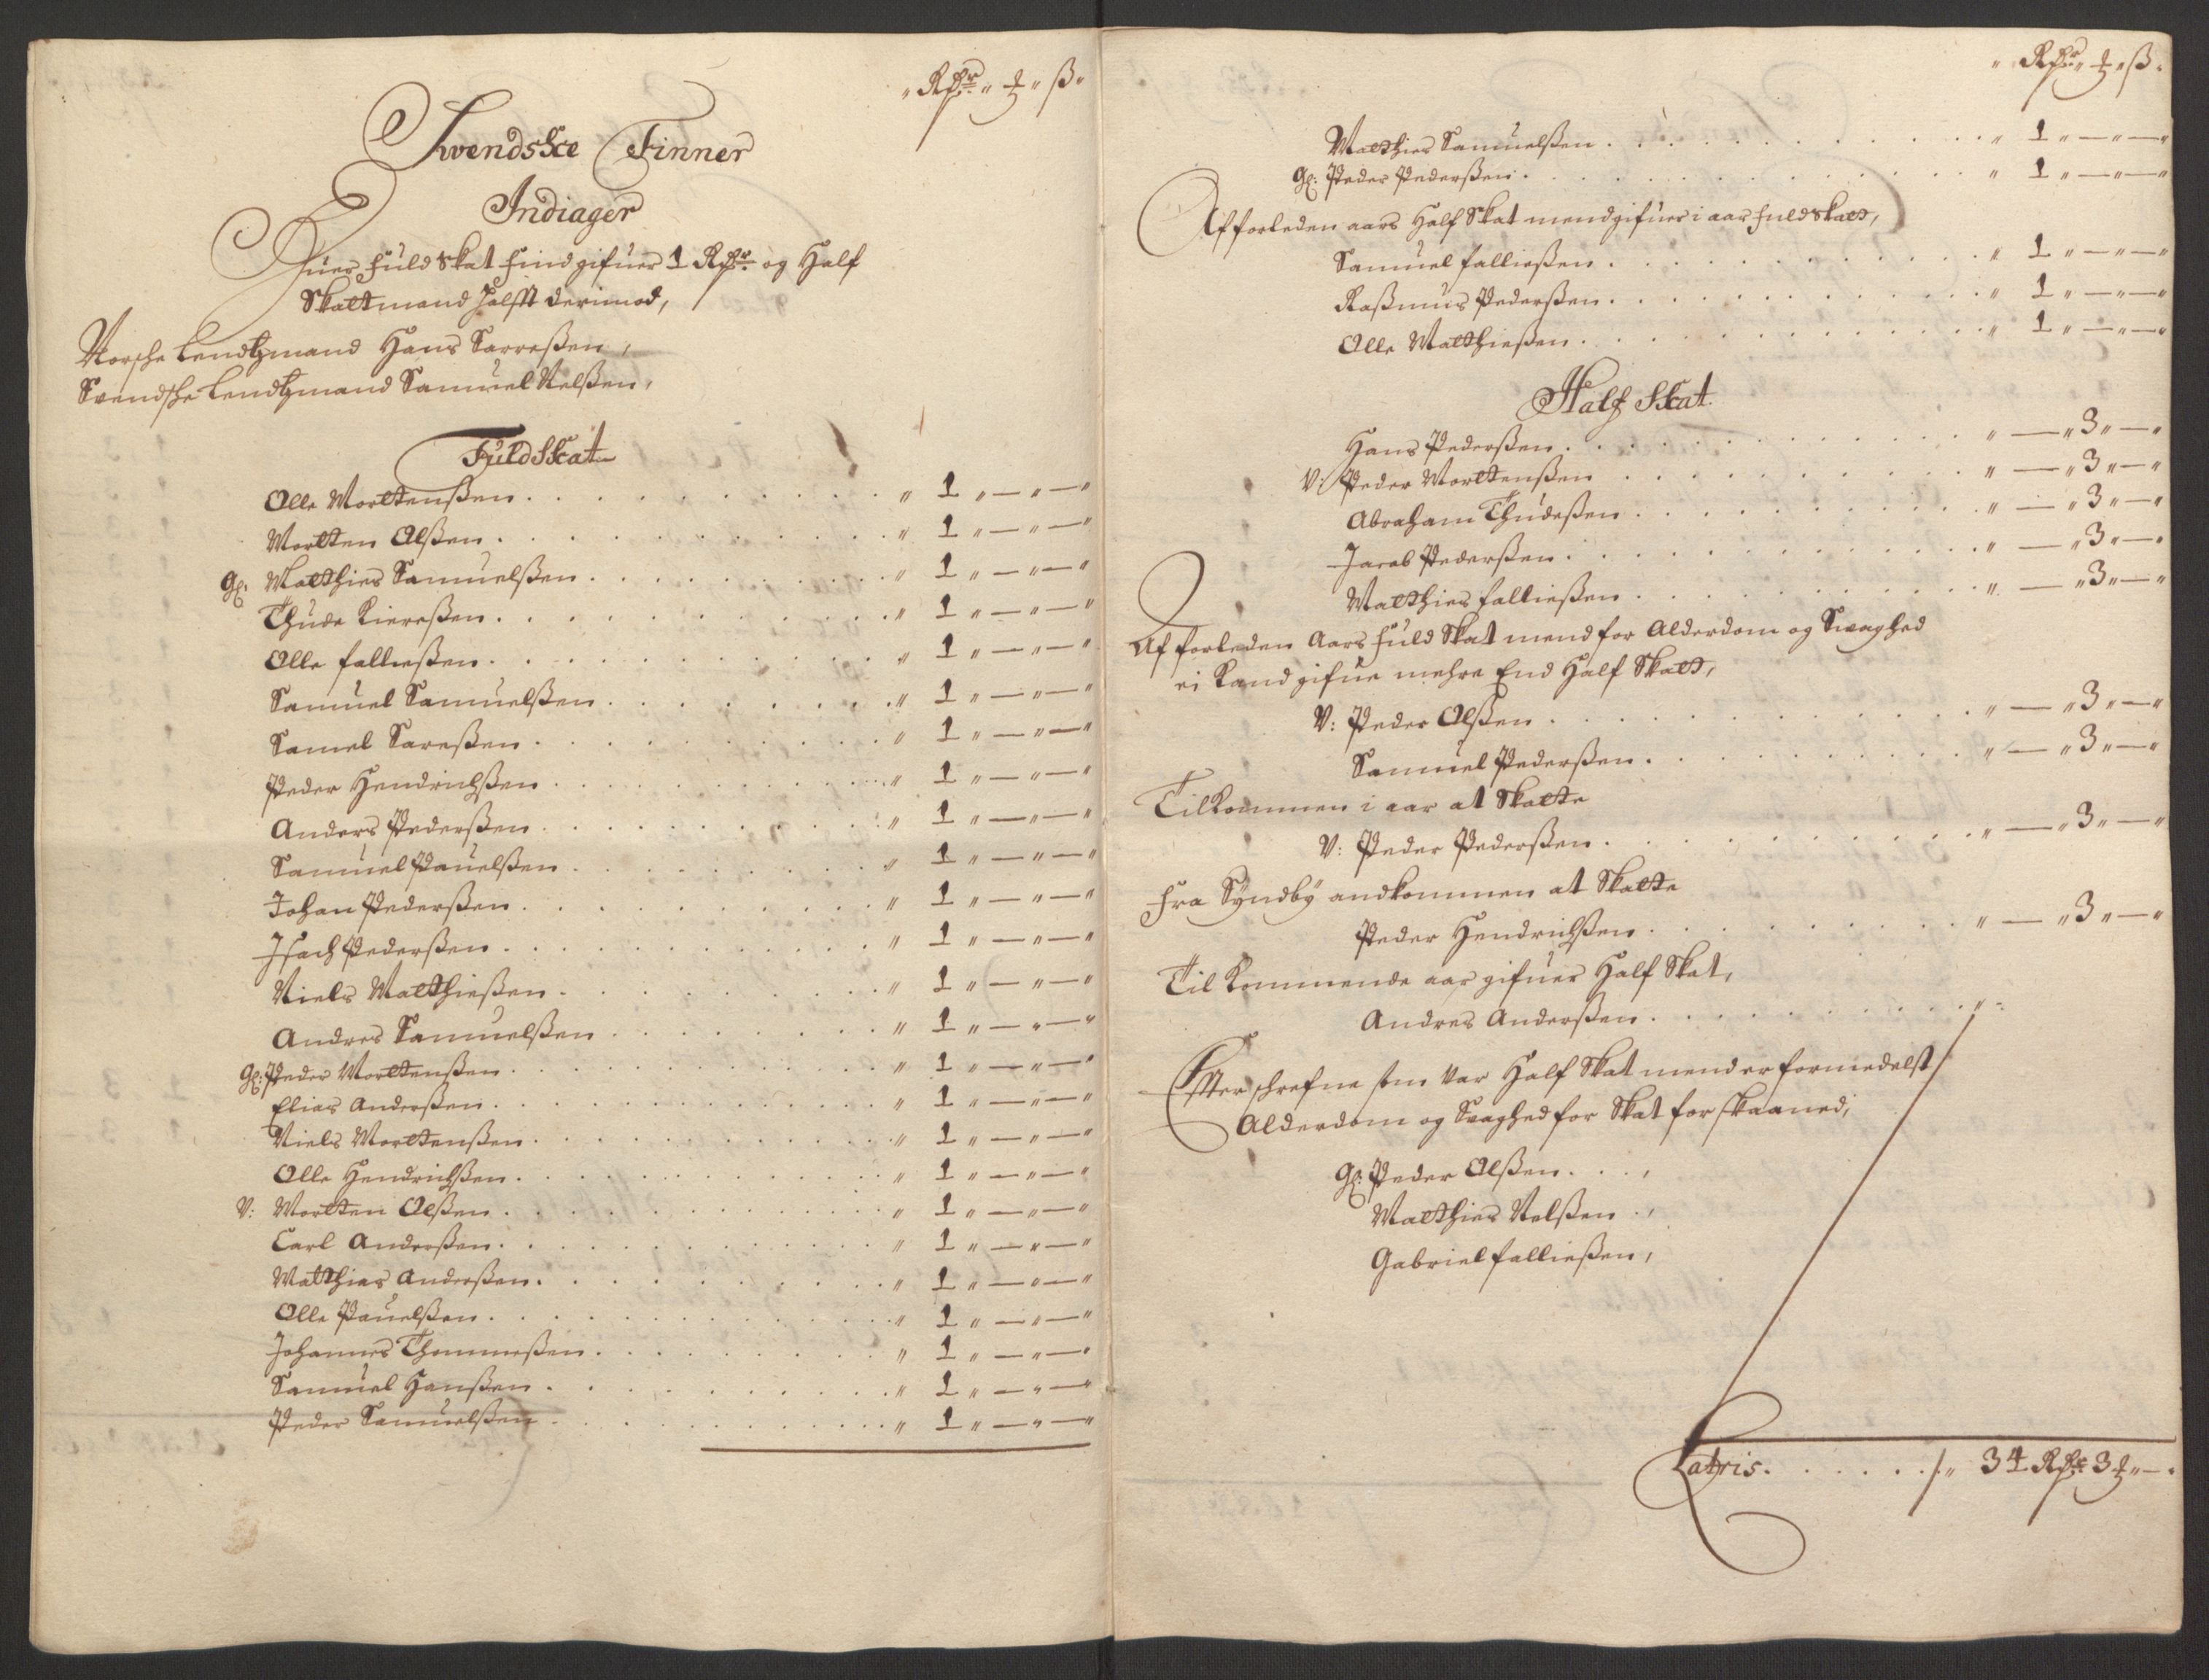 " Rdr " ț " ß "
Swendske Finner
Indiager
Huer fuldskat find gifuer 1 Rdr og Half
Skattmand halfft derimod,
Norsche Lendtzmand Hans Sarreßen,
Svendsche Lendtzmand Samuel Nelßen,
Fuldskat
Olle Morttenßen . . . " 1 " — " — "
Mortten Olßen . . . " 1 " — " — "
Gl: Matthies Samuelßen . . . " 1 " — " — "
Thude Kiereßen . . . " 1 " — " — "
Olle falließen . . . " 1 " — " — "
Samuel Samuelßen . . . " 1 " — " — "
Samel Sareßen . . . " 1 " — " — "
Peder Hendrichßen . . . " 1 " — " — "
Anders Pederßen . . . " 1 " — " — "
Samuel Pauelßen . . . " 1 " — " — "
Johan Pederßen . . . " 1 " — " — "
Jsach Pederßen . . . " 1 " — " — "
Niels Matthießen . . . " 1 " — " — "
Andres Samuelßen . . . " 1 " — " — "
Gl: Peder Morttenßen . . . " 1 " — " — "
Elias Anderßen . . . " 1 " — " — "
Niels Morttenßen . . . " 1 " — " — "
Olle Hendrichßen . . . " 1 " — " — "
V: Mortten Olßen . . . " 1 " — " — "
Carl Anderßen . . . " 1 " — " — "
Matthias Anderßen . . . " 1 " — " — "
Olle Pauelßen . . . " 1 " — " — "
Johannes Thommeßen . . . " 1 " — " — "
Samuel Hanßen . . . " 1 " — " — "
Peder Samuelßen . . . " 1 " — " — "
" Rdr " ț " ß "
Matthies Samuelßen . . . " 1 " — " — "
Gl: Peder Pederßen . . . " 1 " — " — "
Af forleden aars Half Skat mend gifuer i aar fuld skatt,
Samuel falließen . . . " 1 " — " — "
Raßmus Pederßen . . . " 1 " — " — "
Olle Matthießen . . . " 1 " — " — "
Half Skat
Hans Pederßen . . . " — " 3 " — "
V: Peder Morttenßen . . . " — " 3 " — "
Abraham Thudeßen . . . " — " 3 " — "
Jacob Pederßen . . . " — " 3 " — "
Matthies falließen . . . " — " 3 " — "
Af forleden Aars fuld Skat mend for Alderdom og Swaghed
ei kand gifue mehre End Half Skatt,
V: Peder Olßen . . . " — " 3 " — "
Samuel Pederßen . . . " — " 3 " — "
Tilkommen i aar at Skatte
V: Peder Pederßen . . . " — " 3 " — "
Fra Sÿndbÿ andkommen at Skatte
Peder Hendrichßen . . . " — " 3 " — "
Til kommende aar gifuer Half Skat,
Andres Anderßen . . . "
Effter schrefne som var Half Skat mend er formedelst
Alderdom og Svaghed for Skat forskaaned,
Gl: Peder Olßen . . ,
Matthies Nelßen . ,
Gabriel falließen,
Latris . . . . . /. " 34 Rdr 3 ț " — "